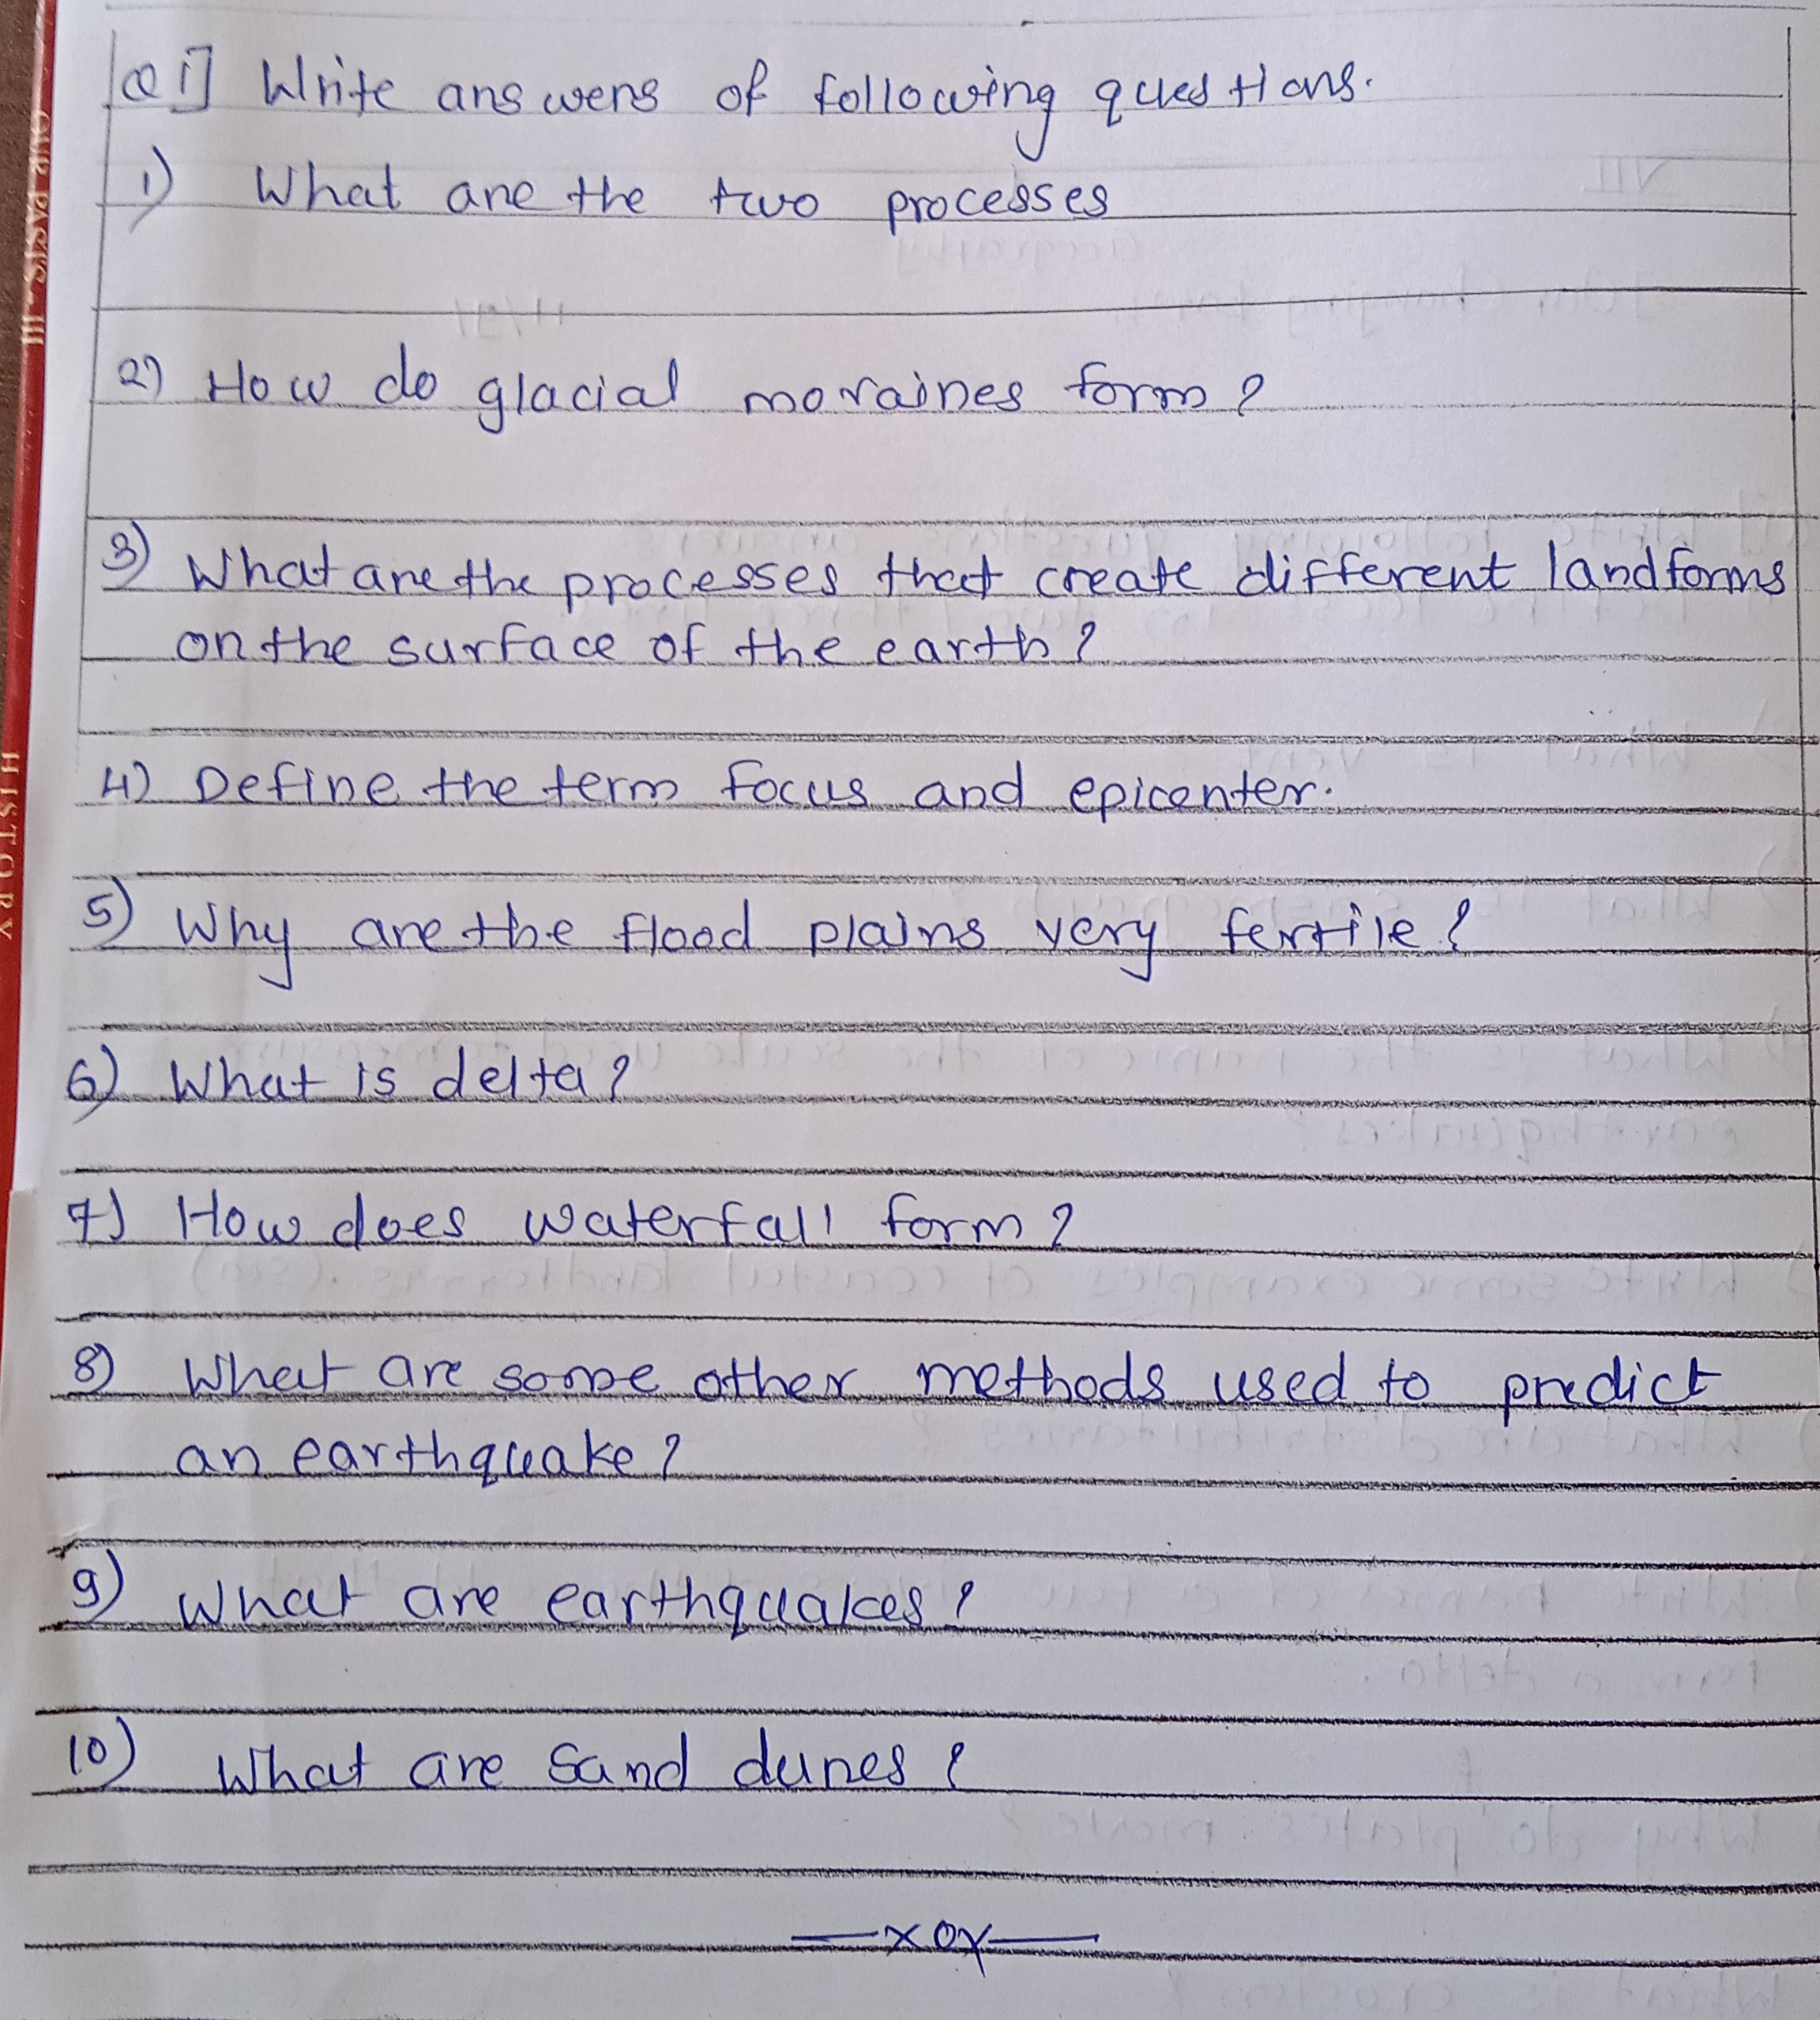 Q 1] Write answers of following questions.
1) What are the two processes
2) How do glacial moraines form?
3) What are the processes that create different landforms
on the surface of the earth?
4) Define the term focus and epicenter.
5) Why are the flood plains very fertile?
6) What is delta?
7) How does waterfall form?
8) What are some other methods used to predict
an earthquake?
9) What are earthquakes?
10) What are Sand dunes?
—xox—